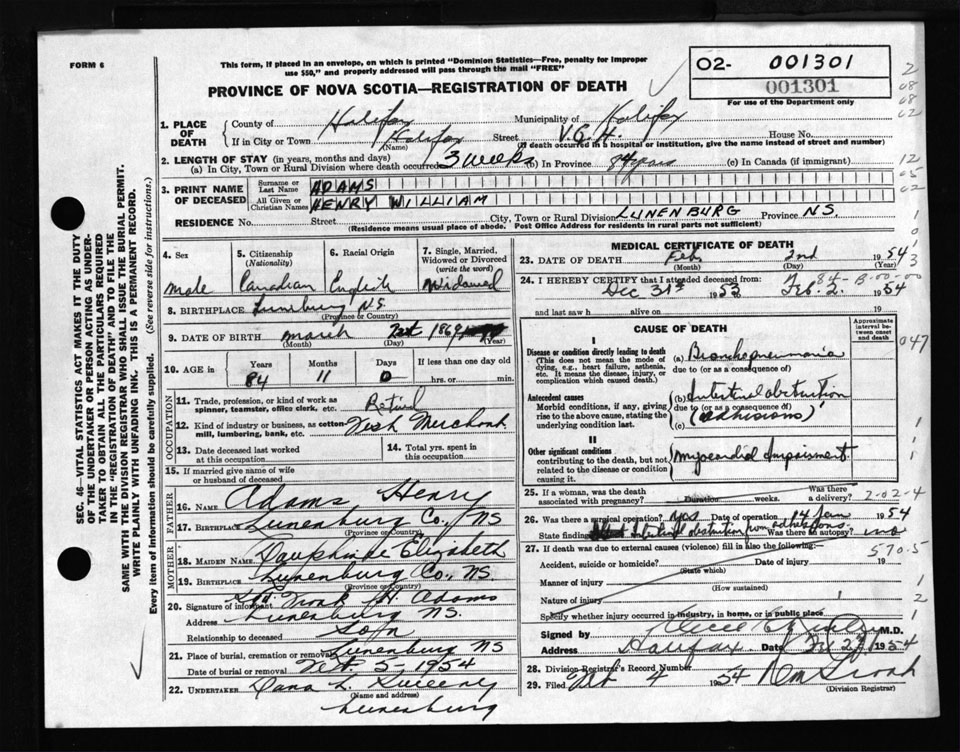 FORM 6
This form, if placed in an envelope, on which is printed "Dominion Statistics—Free, penalty for improper
use $50," and properly addressed will pass through the mail "FREE"
PROVINCE OF NOVA SCOTIA—REGISTRATION OF DEATH
02- 001301
001301
For use of the Department only
2
08
08
02
1. PLACE OF DEATH
County of Halifax Municipality of Halifax
If in City or Town Halifax Street V.G.H. House No.
(Name) (If death occurred in a hospital or institution, give the name instead of street and number)
2. LENGTH OF STAY (in years, months and days)
(a) In City, Town or Rural Division where death occurred 3 weeks (b) In Province 84 years (c) In Canada (if immigrant)
12
05
02
3. PRINT NAME OF DECEASED
Surname or Last Name ADAMS
All Given or Christian Names HENRY WILLIAM
RESIDENCE No. Street City, Town or Rural Division LUNENBURG Province N.S.
(Residence means usual place of abode. Post Office Address for residents in rural parts not sufficient)
4. Sex
male
5. Citizenship (Nationality)
Canadian
6. Racial Origin
English
7. Single, Married, Widowed or Divorced (write the word)
Widowed
8. BIRTHPLACE Lunenburg N.S.
(Province or Country)
9. DATE OF BIRTH March 1869
(Month) (Day) (Year)
10. AGE in
Years Months Days If less than one day old
84 11 0 hrs. or min.
OCCUPATION
11. Trade, profession, or kind of work as spinner, teamster, office clerk, etc. Retired
12. Kind of industry or business, as cotton mill, lumbering, bank, etc. Fish Merchant
13. Date deceased last worked at this occupation
14. Total yrs. spent in this occupation
15. If married give name of wife or husband of deceased
FATHER
16. NAME Adams Henry
17. BIRTHPLACE Lunenburg Co., NS
(Province or Country)
MOTHER
18. MAIDEN NAME Dauphinee Elizabeth
19. BIRTHPLACE Lunenburg Co., NS.
(Province or Country)
20. Signature of informant Sgd. Frank H. Adams
Address Lunenburg NS.
Relationship to deceased Son
21. Place of burial, cremation or removal Lunenburg NS
Date of burial or removal Feb. 5-1954
22. UNDERTAKER Dana L. Sweeney
(Name and address)
Lunenburg
MEDICAL CERTIFICATE OF DEATH
23. DATE OF DEATH Feb. 2nd 1954
(Month) (Day) (Year)
24. I HEREBY CERTIFY that I attended deceased from:
84-B-00-00
Dec 31st 1953 to Feb. 2. 1954
and last saw h alive on 19
CAUSE OF DEATH
Approximate interval between onset and death
047
I
Disease or condition directly leading to death
(This does not mean the mode of dying, e.g., heart failure, asthenia, etc. It means the disease, injury, or complication which caused death.)
(a) Bronchopneumonia
due to (or as a consequence of)
Antecedent causes
Morbid conditions, if any, giving rise to the above cause, stating the underlying condition last.
(b) Intestinal obstruction
due to (or as a consequence of)
(c) (adhesions)
II
Other significant conditions
contributing to the death, but not related to the disease or condition causing it.
myocardial impairment
25. If a woman, was the death associated with pregnancy? Duration weeks. Was there a delivery?
2-02-4
26. Was there a surgical operation? yes Date of operation 14 Jan 1954
State findings intestinal obstruction from adhesions Was there an autopsy? no
27. If death was due to external causes (violence) fill in also the following:—
570-5
Accident, suicide or homicide? Date of injury 19
(State which)
Manner of injury
(How sustained)
Nature of injury
Specify whether injury occurred in industry, in home, or in public place
Signed by M.D.
Address Halifax Date Feb 2 1954
28. Division Registrar's Record Number
29. Filed Feb 4 1954
(Division Registrar)
SEC. 46—VITAL STATISTICS ACT MAKES IT THE DUTY
OF THE UNDERTAKER OR PERSON ACTING AS UNDER-
TAKER TO OBTAIN ALL THE PARTICULARS REQUIRED
IN THE "REGISTRATION OF DEATH" AND TO FILE THE
SAME WITH THE DIVISION REGISTRAR WHO SHALL ISSUE THE BURIAL PERMIT.
WRITE PLAINLY WITH UNFADING INK. THIS IS A PERMANENT RECORD.
Every item of information should be carefully supplied. (See reverse side for instructions.)